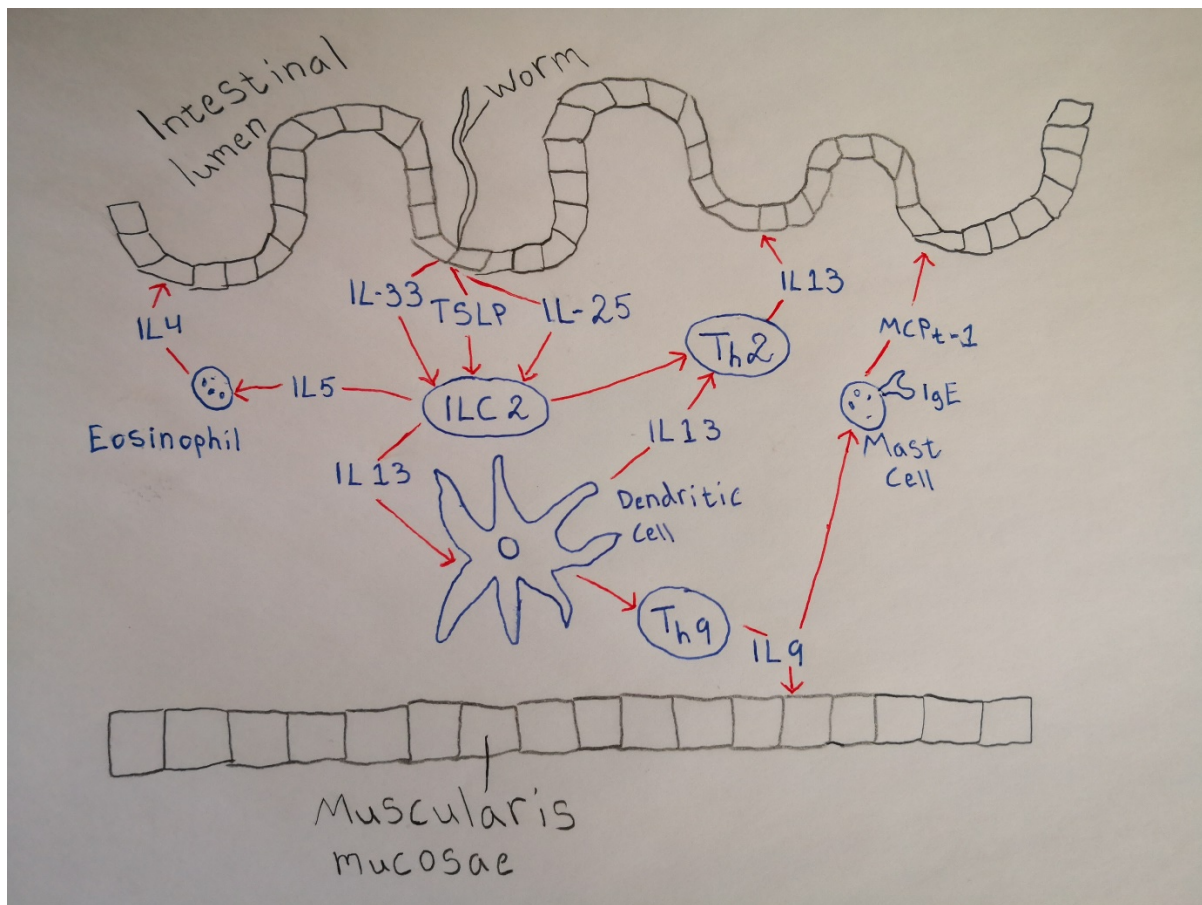 Intestinal
lumen
worm
IL-33
TSLP
IL-25
IL13
IL4
MCPt-1
Th2
IL5
ILC2
IgE
Eosinophil
Mast
Cell
IL13
IL13
Dendritic
Cell
Th9
IL9
Muscularis
mucosae